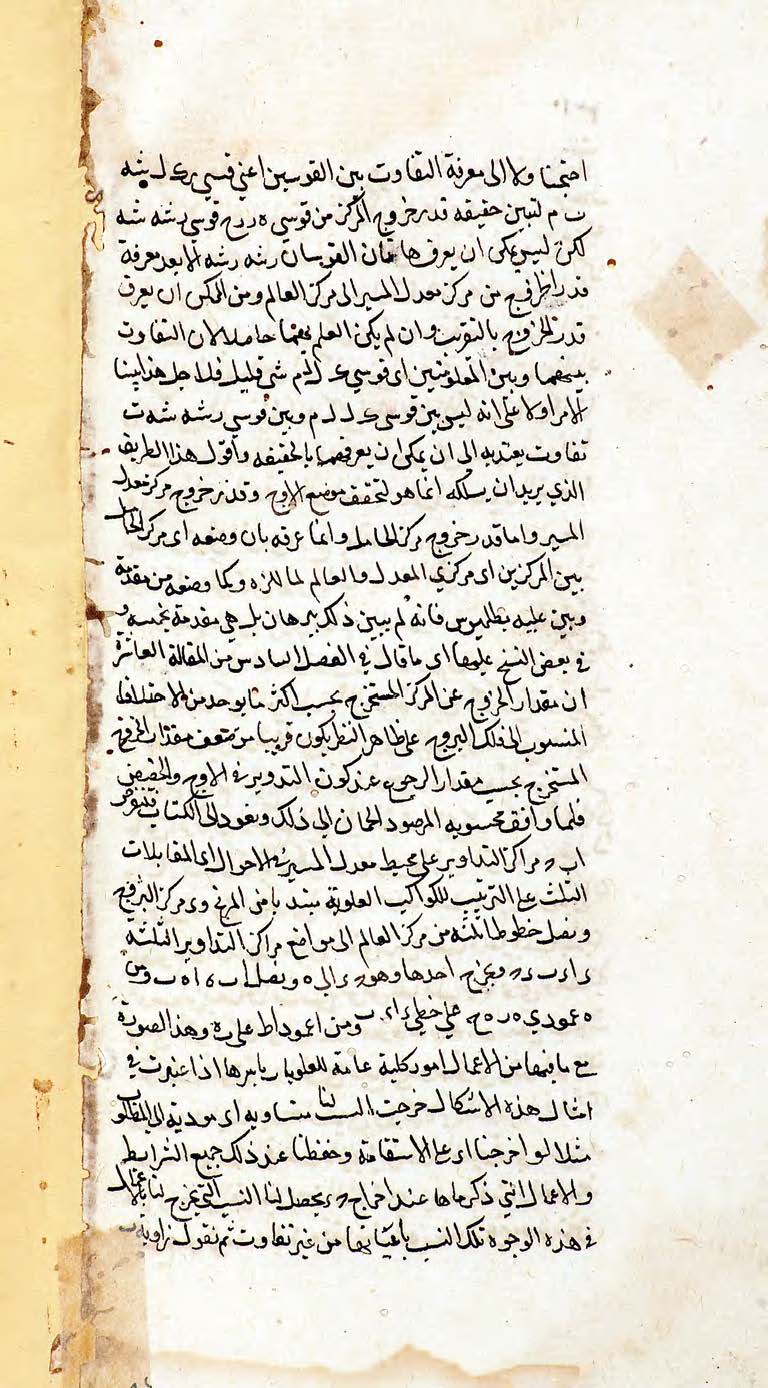 احتجنا اولا الى معرفة التفاوت بين القوسين اعني قسي
م لتبين حقيقه قدر خروج المركز من قوسي ه قوسي رشه شه
لكن ليس يمكن ان يعرف هاتان القوسان رشه رشه الا بعد معرفة
قدر الخروج من مركز معدل المسير الى مركز العالم ومن الممكن ان يعرف
قدر الخروج بالتقريب وان لم يكن العلم بهما حاصلا لان التفاوت
بينهما وبين المعلومتين اي قوسي ل م شي قليل فلاجل هذا بينا
الامر اولا على انه ليس بين قوسي ل ل م وبين قوسي رشه شه ت
تفاوت يعتد به الى ان يمكن ان يعرفهما بالحقيقه واقول هذا الطريق
الذي يريد ان يسلكه انما هو لتحقق موضع الاوج وقدر خروج مركز معدل
المسير واما قدر خروج مركز الحامل وانما عرفه بان وضعه اي مركز الحامل
بين المركزين اي مركزي المعدل والعالم لما وكما وضعه من مقدمة
وبين عليه بطلميوس فانه لم يبين ذلك ببرهان بل هي مقدمة و
في بعض النسخ عليها اي ما قال في الفصل السادس من المقالة العاشرة
ان مقدار الخروج عن المركز المستخرج بحسب اكثر ما يوجد من الاختلاف
المنسوب الى فلك البروج على ظاهر النظر يكون قريبا من ضعف مقدار الخروج
المستخرج بحسب مقدار الرجوع عند كون التدوير في الاوج والحضيض
فلما وافق محسوبه المرصود اطمان الى ذلك ونعود الى الكتاب فنفرض
اب مراكز التداوير على محيط معدل المسير في الاحوال اي المقابلات
الثلث على الترتيب للكواكب العلوية مبتديا من المريخ و مركز البروج
ونصل خطوطا ثلثه من مركز العالم الى مواضع مراكز التداوير الثلثة
ونخرج احدها وهو الى ه ونصل اب ه ا ه ب ومن
ه عمودي ه ر ه ح على خطي ومن ا عمود اط على ه وهذا الصورة
مع ما فيها من الاعمال امور كلية عامة للعلويات باسرها اذا اعتبرت في
امثال هذه الاشكال خرجت لنا متساويه اي مودية الى المطلوب
مثلا لو اخرجنا على الاستقامة وحفظنا عند ذلك جميع الشرايط
والاعمال التي ذكرناها عند اخراج يحصل لنا النسب التي تخرج لنا بالاعمال
في هذه الوجوه تلك النسب باعيانها من غير تفاوت ثم نقول زاوية